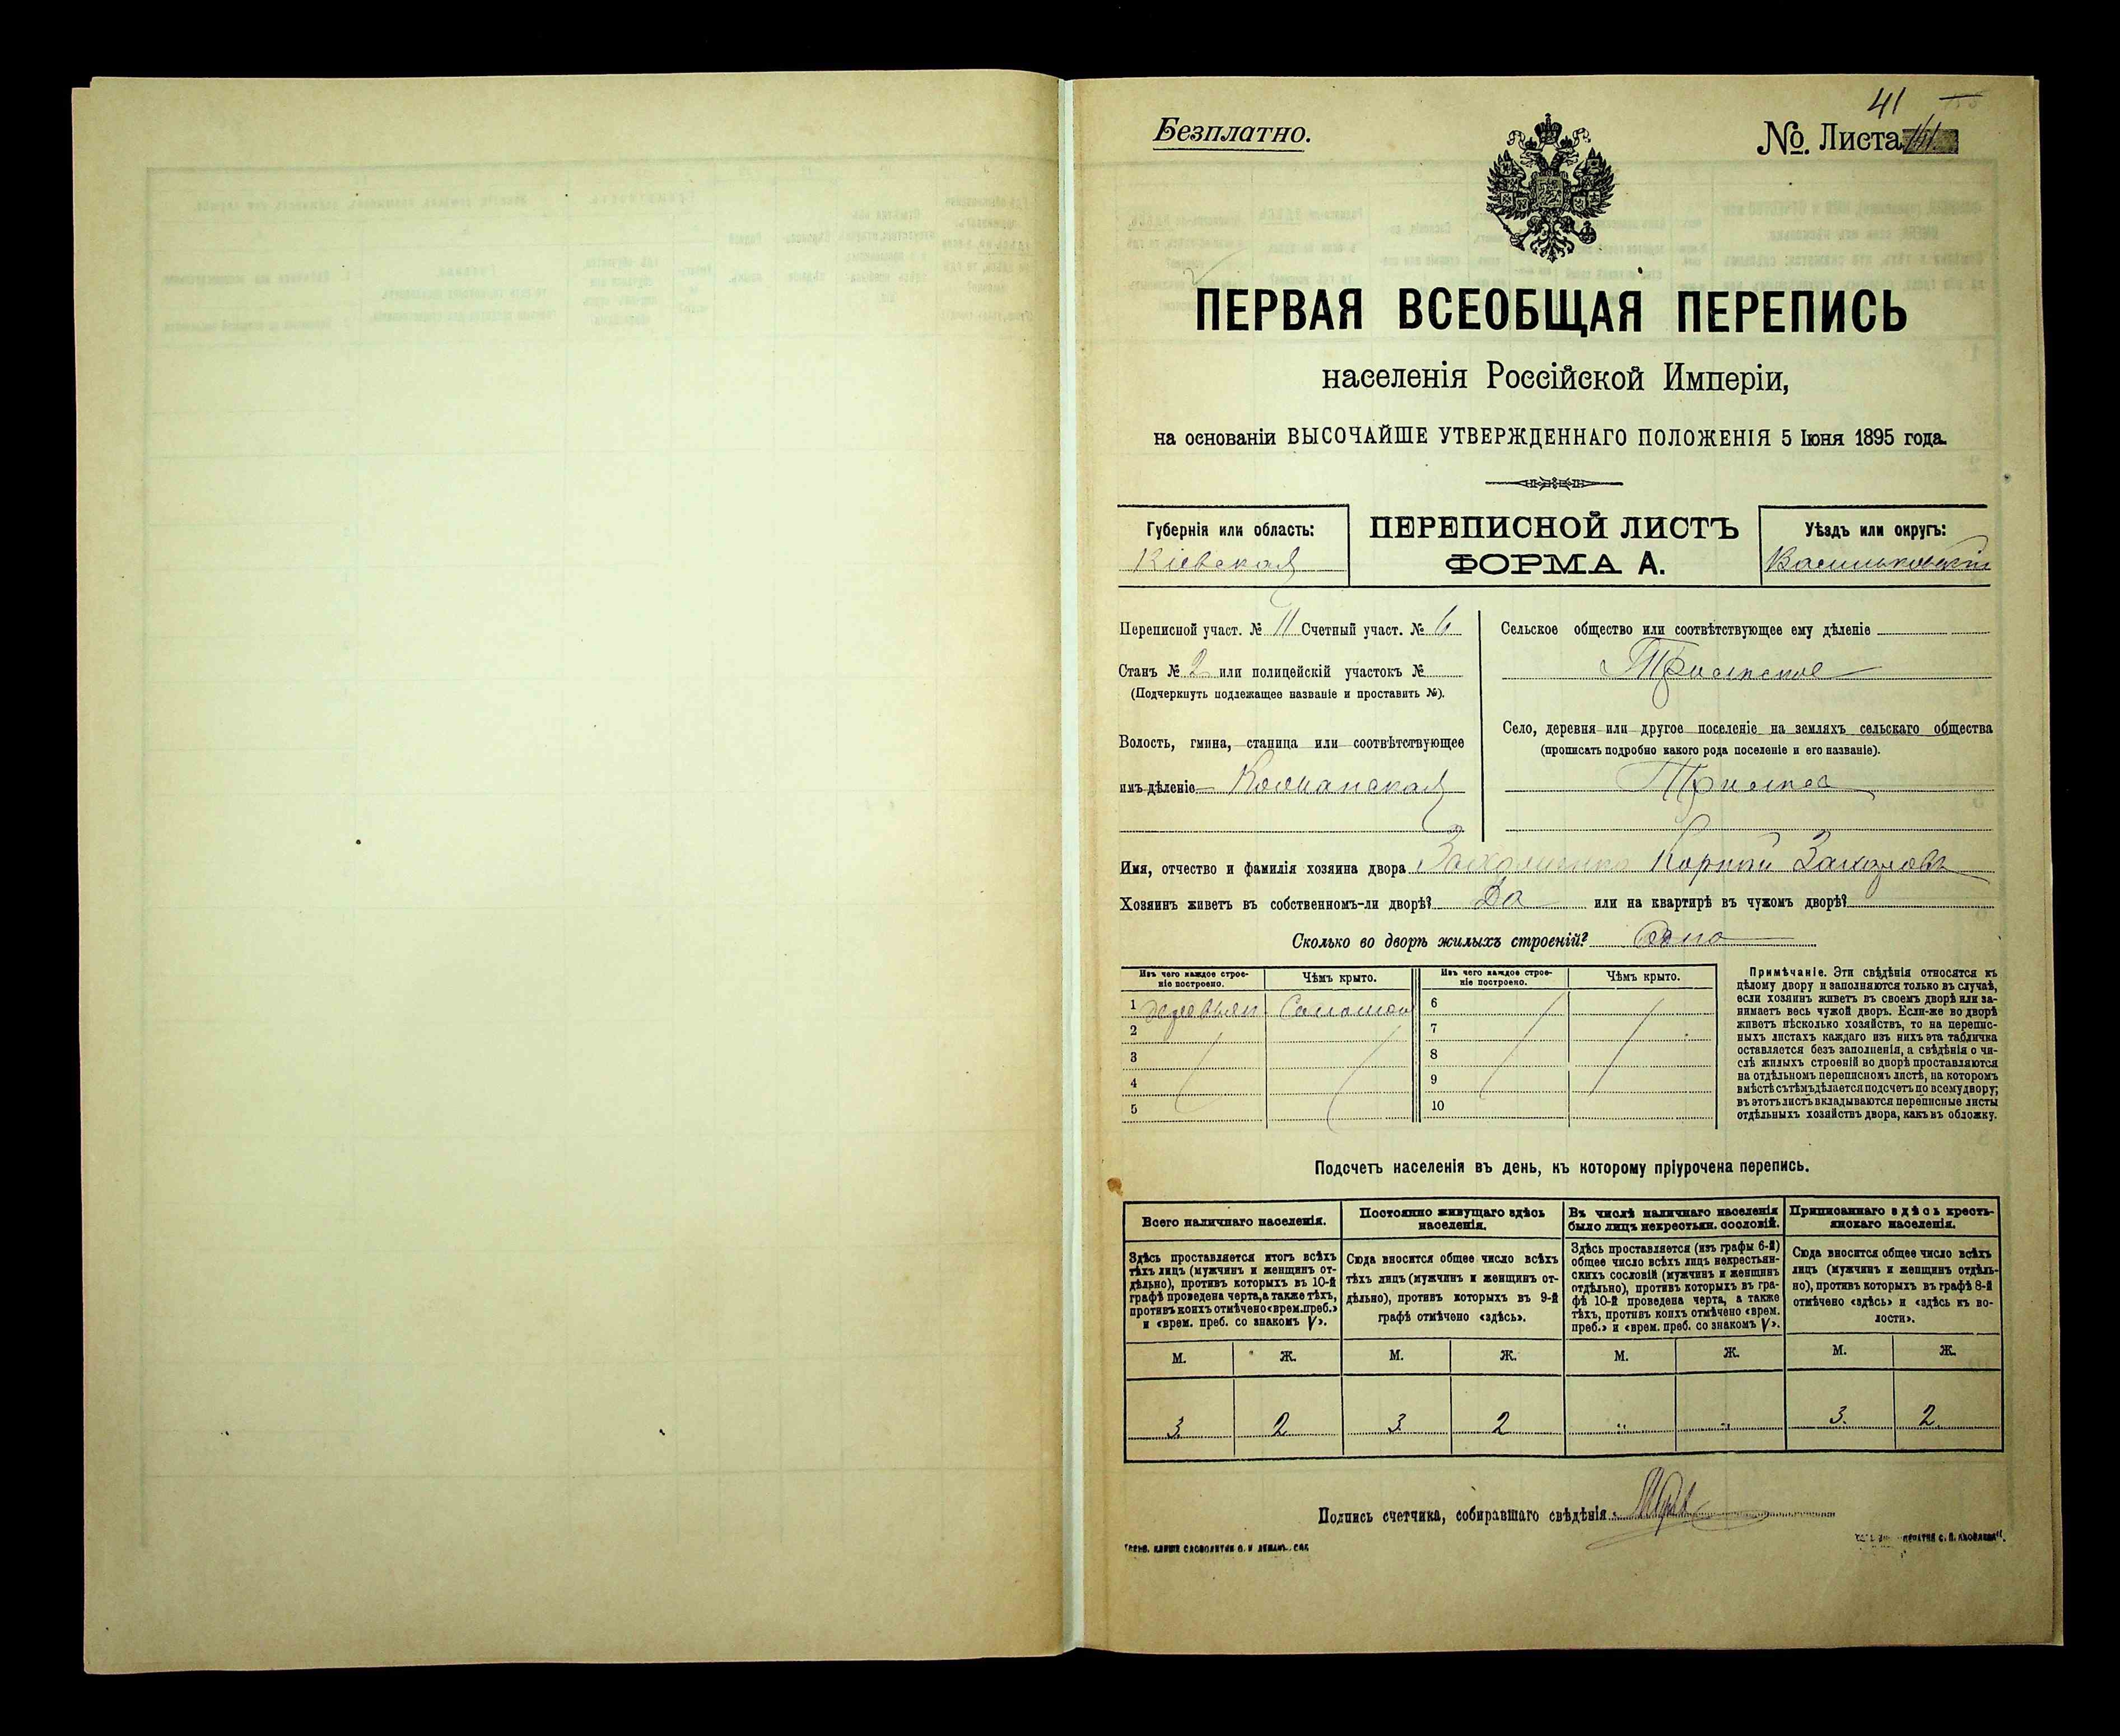 41
Безплатно.
№. Листа
ПЕРВАЯ ВСЕОБЩАЯ ПЕРЕПИСЬ
населенія Россійской Имперіи,
на основаніи ВЫСОЧАЙШЕ УТВЕРЖДЕННАГО ПОЛОЖЕНІЯ 5 Іюня 1895 года.
Губернія или область:
Кіевская
ПЕРЕПИСНОЙ ЛИСТЪ
ФОРМА А.
Уѣздъ или округъ:
Васильковскій
Переписной участ. № 11 Счетный участ. № 6
Станъ № 2 или полицейскій участокъ №
(Подчеркнуть подлежащее названіе и проставить №).
Волость, гмина, станица или соотвѣтствующее
имъ дѣленіе Кошанская
Сельское общество или соотвѣтствующее ему дѣленіе
Трилѣсское
Село, деревня или другое поселеніе на земляхъ сельскаго общества
(прописать подробно какого рода поселеніе и его названіе).
Имя, отчество и фамилія хозяина двора Корній Захаровъ
Хозяинъ живетъ въ собственномъ-ли дворѣ? Да или на квартирѣ въ чужомъ дворѣ?
Сколько во дворѣ жилыхъ строеній? Одно
Изъ чего каждое строе-
ніе построено.
Чѣмъ крыто.
Изъ чего каждое строе-
ніе построено.
Чѣмъ крыто.
1 деревян. Соломой
2
3
4
5
6
7
8
9
10
Примѣчаніе. Эти свѣдѣнія относятся къ
цѣлому двору и заполняются только въ случаѣ,
если хозяинъ живетъ въ своемъ дворѣ или за-
нимаетъ весь чужой дворъ. Если-же во дворѣ
живетъ нѣсколько хозяйствъ, то на перепис-
ныхъ листахъ каждаго изъ нихъ эта табличка
оставляется безъ заполненія, а свѣдѣнія о чи-
слѣ жилыхъ строеній во дворѣ проставляются
на отдѣльномъ переписномъ листѣ, на которомъ
вмѣстѣ съ тѣмъ дѣлается подсчетъ по всему двору;
въ этотъ листъ вкладываются переписные листы
отдѣльныхъ хозяйствъ двора, какъ въ обложку.
Подсчетъ населенія въ день, къ которому пріурочена перепись.
Всего наличнаго населенія.
Здѣсь проставляется итогъ всѣхъ
тѣхъ лицъ (мужчинъ и женщинъ от-
дѣльно), противъ которыхъ въ 10-й
графѣ проведена черта, а также тѣхъ,
противъ коихъ отмѣчено «врем. преб.»
и «врем. преб. со знакомъ V».
Постоянно живущаго здѣсь
населенія.
Сюда вносится общее число всѣхъ
тѣхъ лицъ (мужчинъ и женщинъ от-
дѣльно), противъ которыхъ въ 9-й
графѣ отмѣчено «здѣсь».
Въ числѣ наличнаго населенія
было лицъ некрестьян. сословій.
Здѣсь проставляется (изъ графы 6-й)
общее число всѣхъ лицъ некрестьян-
скихъ сословій (мужчинъ и женщинъ
отдѣльно), противъ которыхъ въ гра-
фѣ 10-й проведена черта, а также
тѣхъ, противъ коихъ отмѣчено «врем.
преб.» и «врем. преб. со знакомъ V».
Приписаннаго здѣсь кресть-
янскаго населенія.
Сюда вносится общее число всѣхъ
лицъ (мужчинъ и женщинъ отдѣль-
но), противъ которыхъ въ графѣ 8-й
отмѣчено «здѣсь» и «здѣсь къ во-
лости».
М. Ж. М. Ж. М. Ж. М. Ж.
3 2 3 2 " " 3. 2
Подпись счетчика, собиравшаго свѣдѣнія